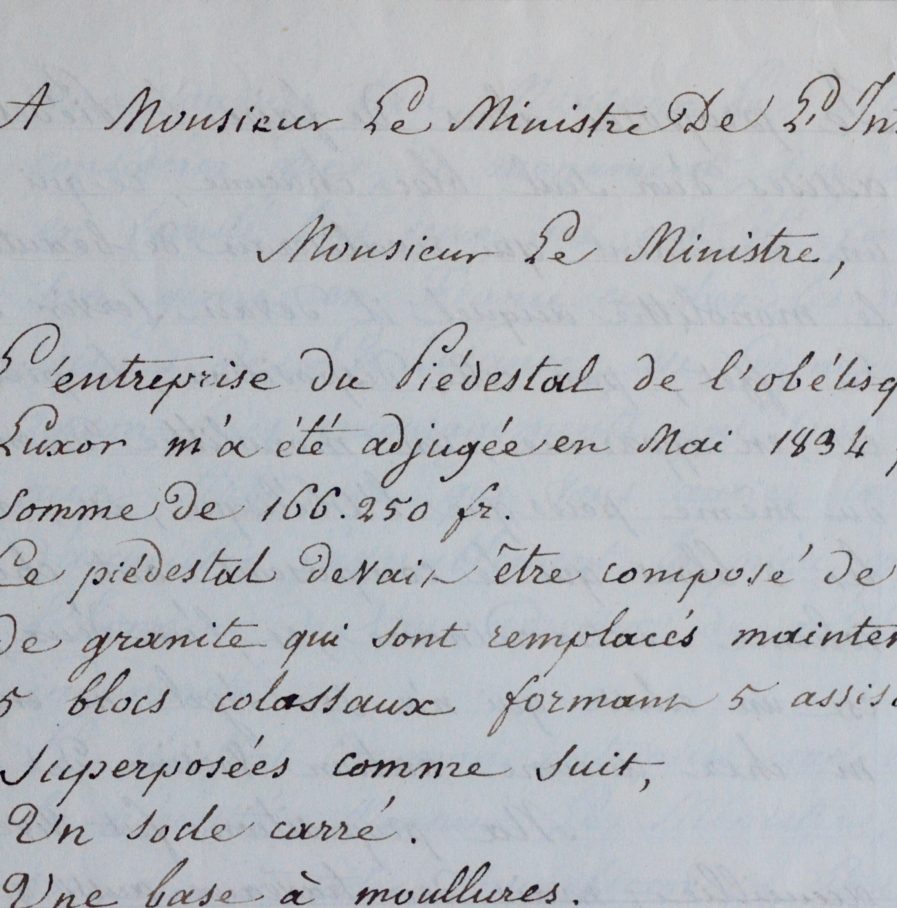 A Monsieur Le Ministre De L'Int
Monsieur Le Ministre,
L'entreprise du Piédestal de l'obélisq
Luxor m'a été adjugée en Mai 1834
somme de 166.250 fr.
Ce piédestal devait être composé de
de granite qui sont remplacés mainten
5 blocs colassaux formant 5 assis
Superposées comme suit,
Un socle carré.
Une base à moullures.